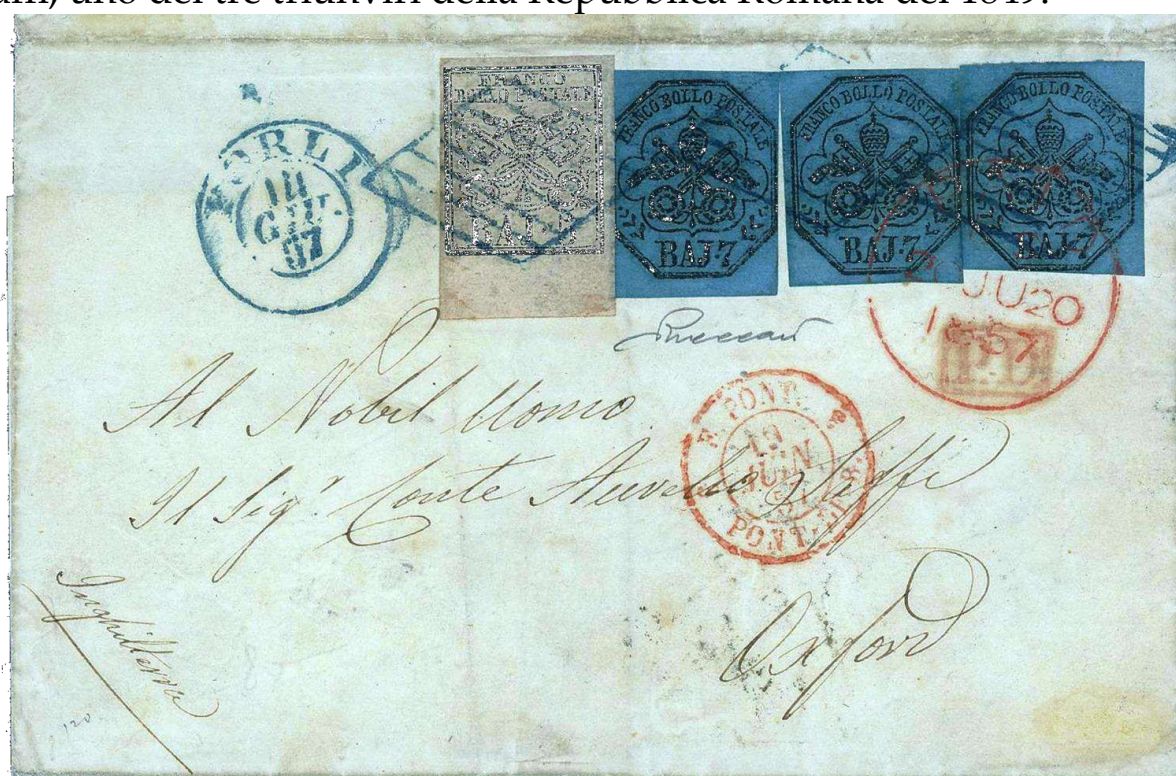 uno dei tre triumviri della Repubblica Romana del 1849.
FRANCO
BOLLO POSTALE
BAJ.
FRANCO BOLLO POSTALE
BAJ.7
FRANCO BOLLO POSTALE
BAJ.7
FRANCO BOLLO POSTALE
BAJ.7
FORLI
GIU.
57
JU20
1857
P.D
E. PONT.
19
JUIN
57
PONT.
Al Nobil Uomo
Il Sigr. Conte Aurelio Saffi
Oxford
Inghilterra
120